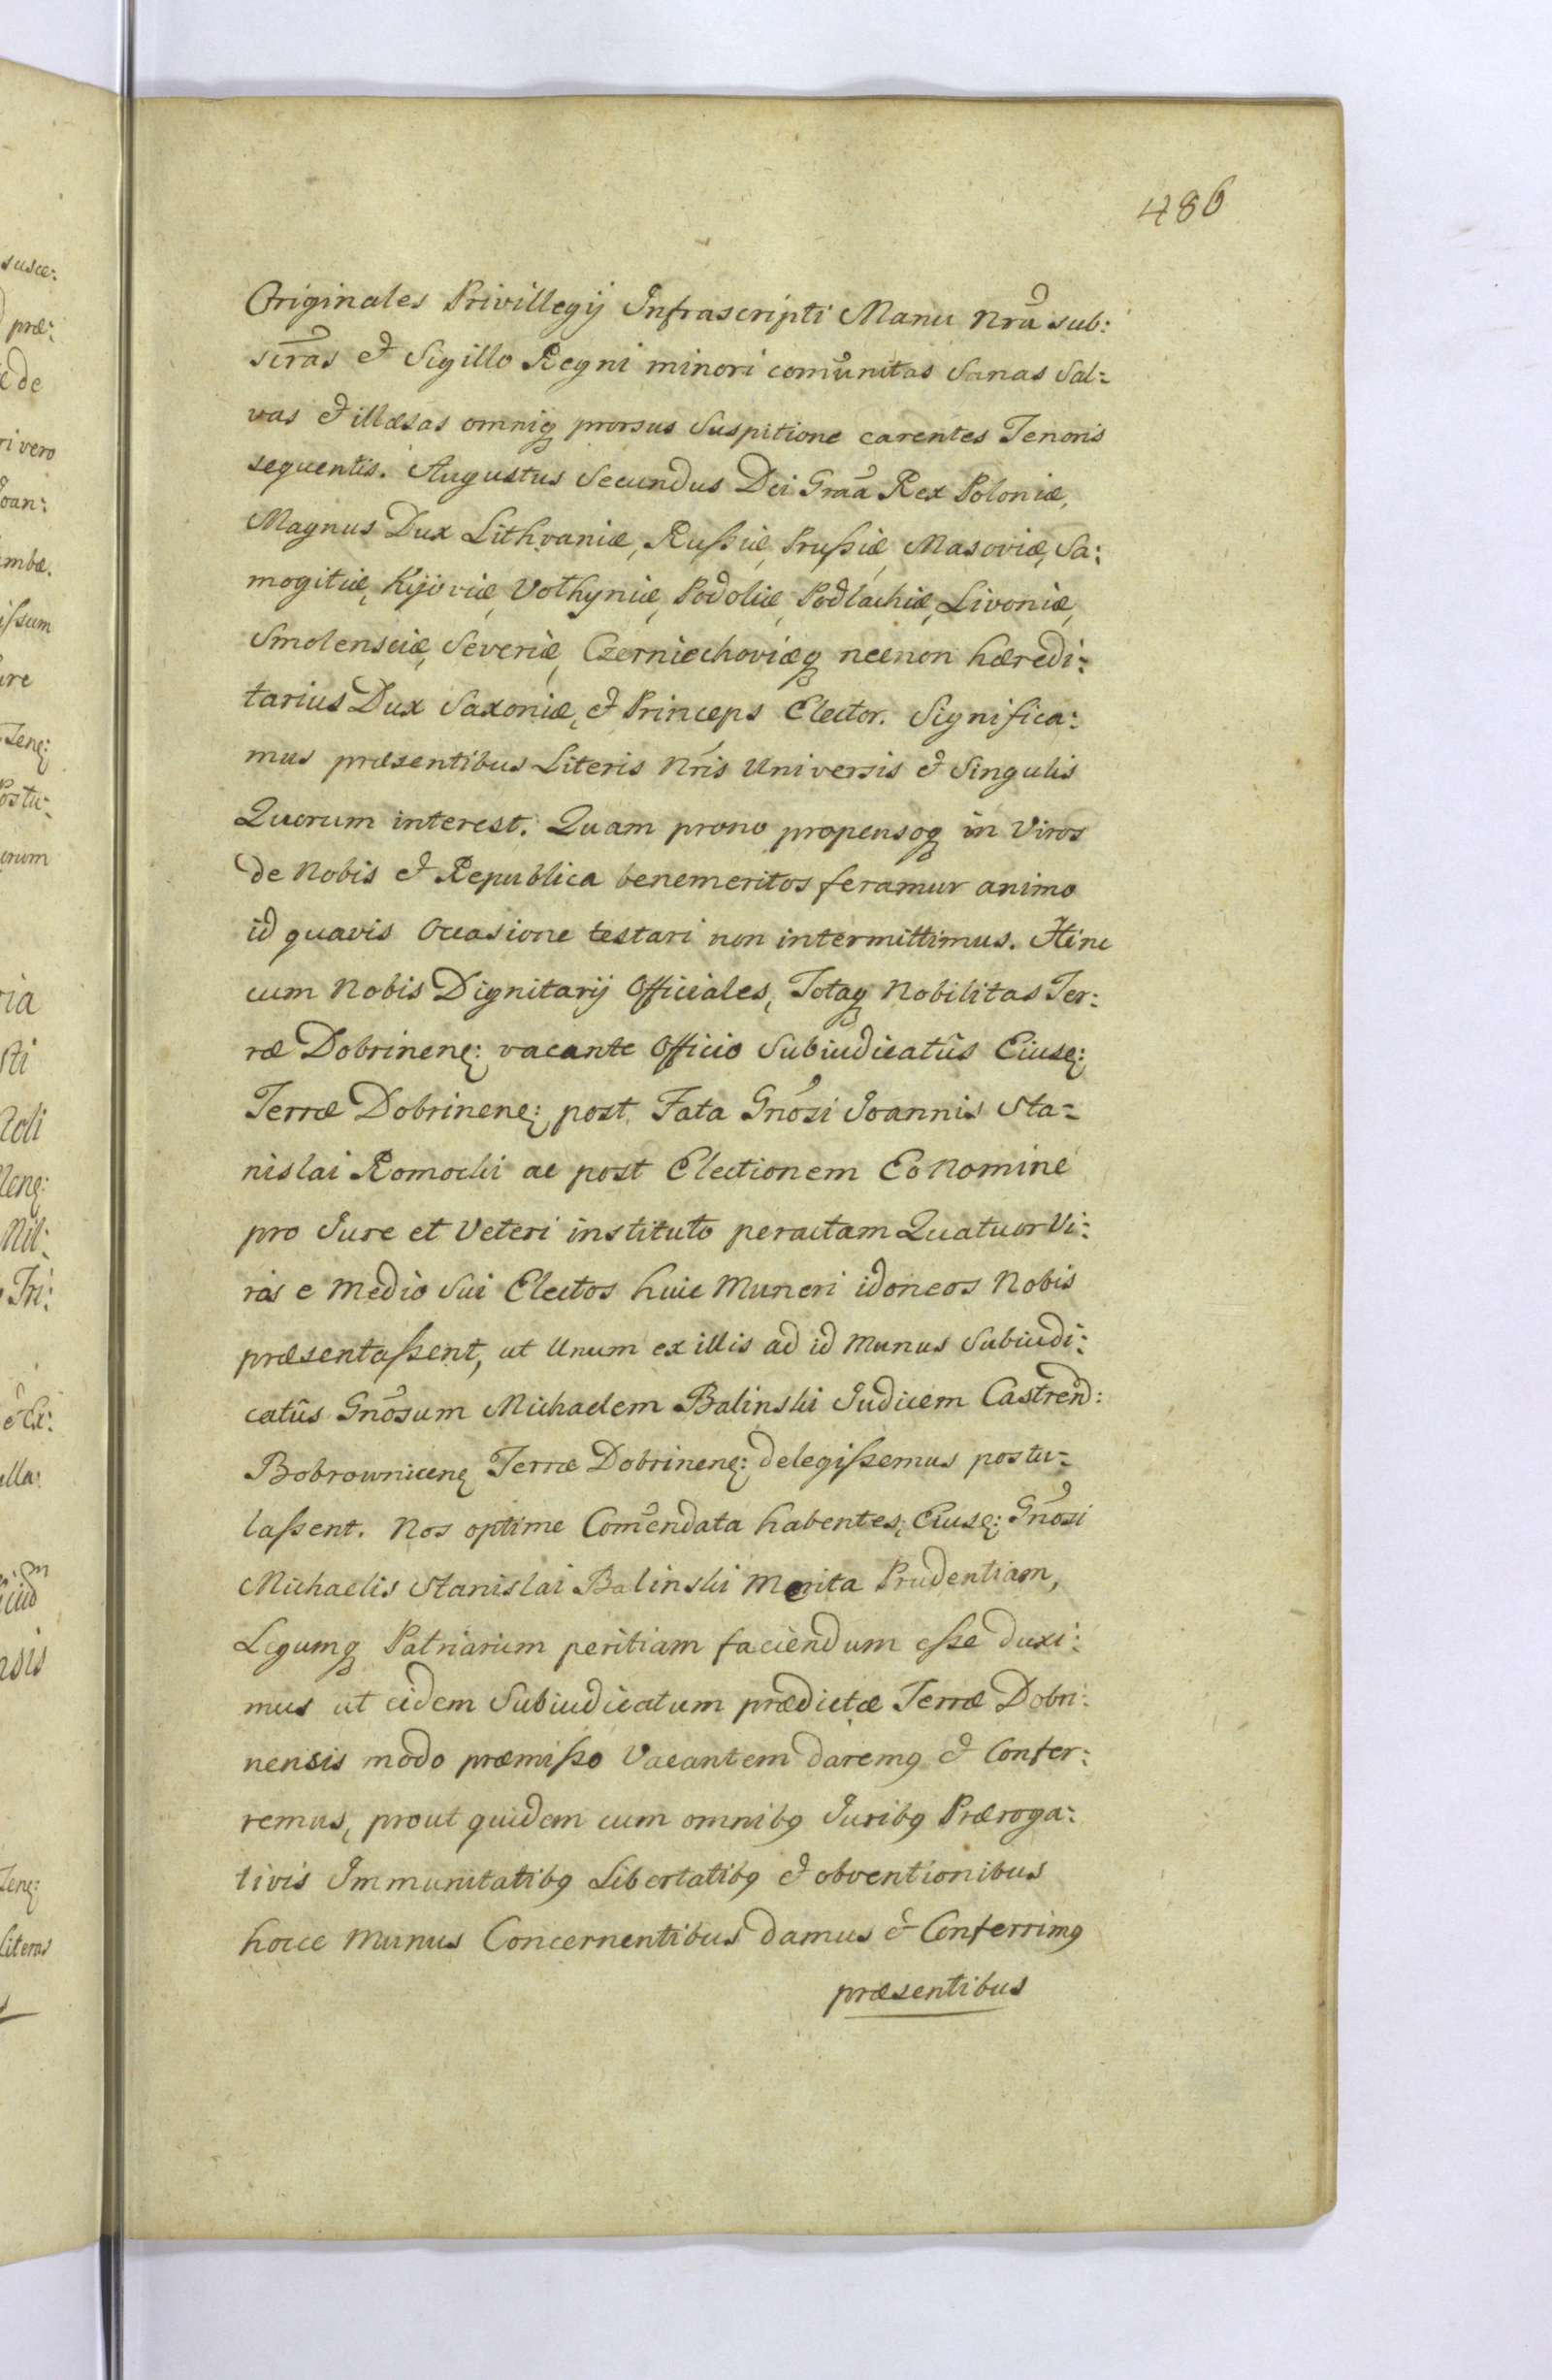 486
Originales Privillegij Infrascripti Manu Nrã sub:
scrãs et Sigillo Regni minori comũnitas Sanas Sal=
vas et illæsas omniq prorsus Suspitione carentes Tenoris
sequentis. Augustus Secundus Dei Graã Rex Poloniæ,
Magnus Dux Lithvaniæ, Rußiæ, Prußiæ, Masoviæ, Sa:
mogitiæ, Kijoviæ, Volhyniæ, Podoliæ, Podlachiæ, Livoniæ,
Smolensciæ, Severiæ, Czerniechoviæq necnon hæredi:
tarius Dux Saxoniæ, et Princeps Elector. Significa:
mus præsentibus Literis Nris Universis et Singulis
Quorum interest. Quam prono propensoq in Viros
de Nobis et Republica benemeritos feramur animo
id quavis Occasione testari non intermittimus. Hinc
cum Nobis Dignitarij Officiales, Totaq Nobilitas Ter:
ræ Dobrinenę: vacante Officio Subiudicatûs Eiusę:
Terræ Dobrinenę: post Fata Gnõsi Joannis Sta=
nislai Romocki ac post Electionem Eo Nomine
pro Jure et Veteri instituto peractam Quatuor Vi:
ros e Medio Sui Electos huic Muneri idoneos Nobis
præsentaßent, ut Unum ex illis ad id Munus Subiudi:
catûs Gnõsum Michaelem Balinski Judicem Castren̄d:
Bobrownicenę Terræ Dobrinenę: delegißemus postu=
laßent. Nos optime Com̃endata habentes, Eiusę: Gnõsi
Michaelis Stanislai Balinski Merita Prudentiam,
Legumq Patriarum peritiam faciendum eße duxi:
mus ut eidem Subiudicatum prædictæ Terræ Dobri:
nensis modo præmißo Vacantem daremꝰ et Confer:
remus, prout quidem cum omnibꝰ Juribꝰ Præroga:
tivis Immunitatibꝰ Libertatibꝰ et obventionibus
hocce Munus Concernentibus damus et Conferrimꝰ
præsentibus